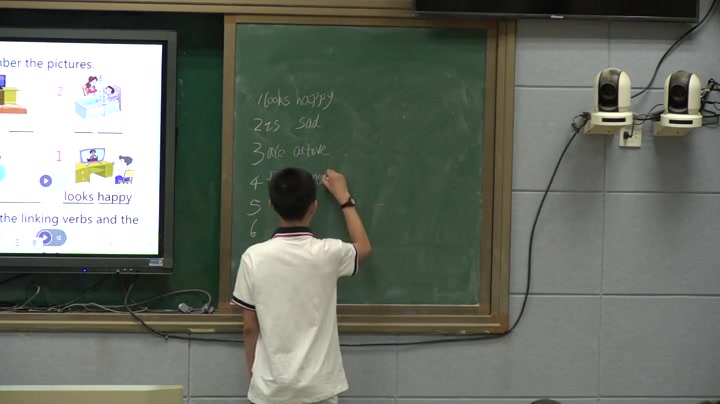 ber the pictures.
2
1
looks happy
the linking verbs and the
1 looks happy
2 is sad
3 are active
4
5
6